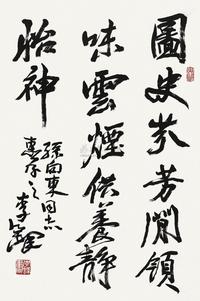 圖史芬芳闲領
味雲煙供養静
胎神
孫向東同志
惠存之 李鐸